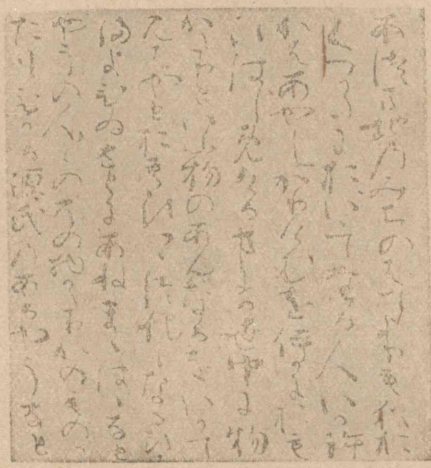 あつま地の道のはてよりも猶お
くつかたにおいいてたる人いか許
かはあやしかりけむをいかにおも
ひはしめける事にか世中に物
かたりといふ物のあんなるをいかて
見はやとおもひつゝつれ〳〵なるひ
るまよひゐなとにあねまゝはゝなと
やうの人〳〵のその物かたりかのもの
かたりひかる源氏のあるやうなと